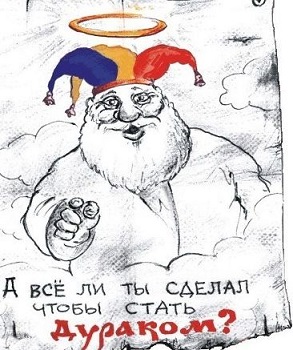 А ВСЁ ЛИ ТЫ СДЕЛАЛ
ЧТОБЫ СТАТЬ
ДУРАКОМ?